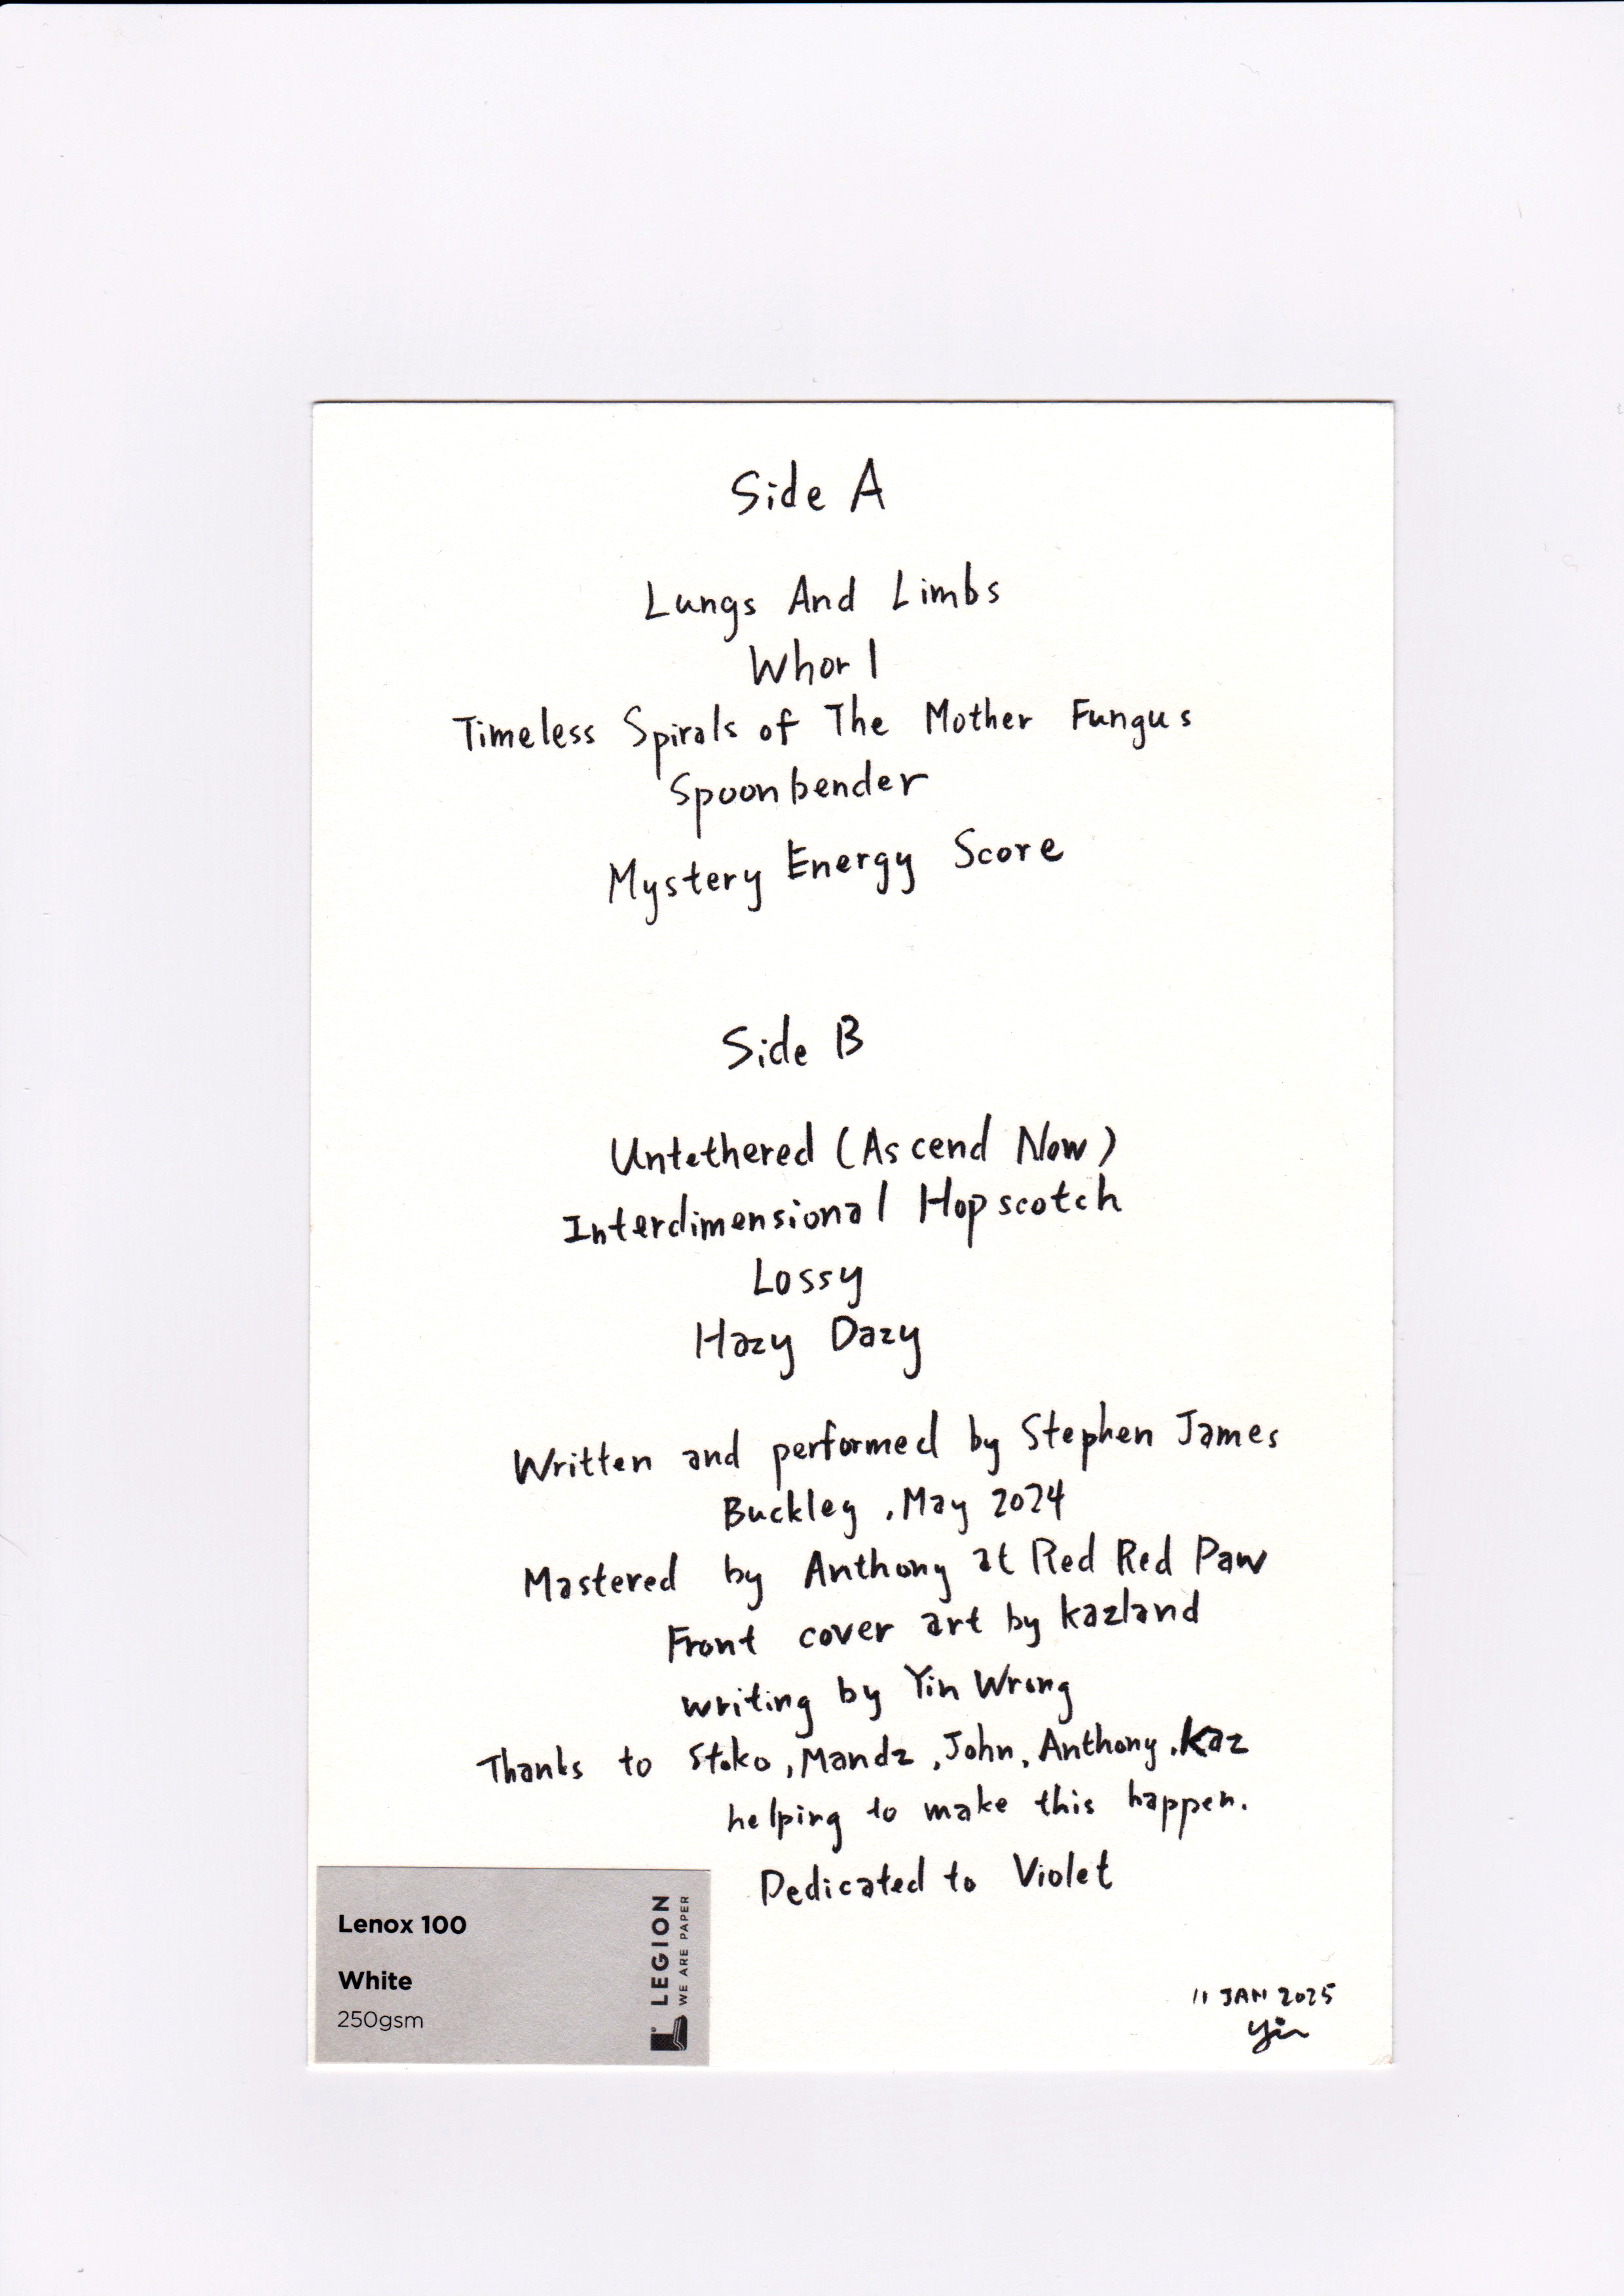 Side A
Lungs And Limbs
Whorl
Timeless Spirals of The Mother Fungus
Spoonbender
Mystery Energy Score
Side B
Untethered (Ascend Now)
Interdimensional Hopscotch
Lossy
Hazy Dazy
Written and performed by Stephen James
Buckley, May 2024
Mastered by Anthony at Red Red Paw
Front cover art by kazland
writing by Yin Wrong
Thanks to Stoko, Mandz, John, Anthony, Kaz
helping to make this happen.
Dedicated to Violet
Lenox 100
White
250gsm
LEGION
WE ARE PAPER
11 JAN 2025
Yin